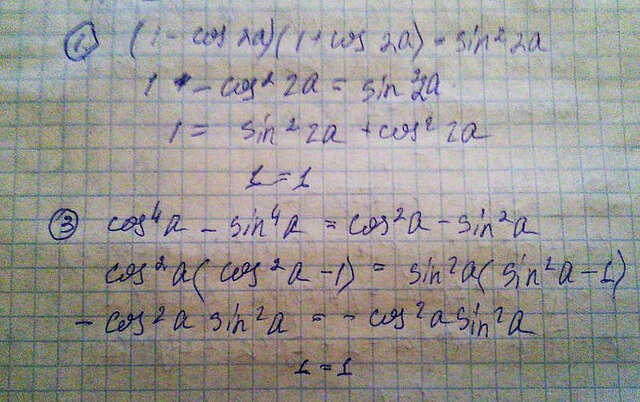 ① (1 - cos 2a)(1 + cos 2a) = sin² 2a
1 - cos² 2a = sin² 2a
1 = sin² 2a + cos² 2a
1 = 1
③ cos⁴a - sin⁴a = cos²a - sin²a
cos²a (cos²a - 1) = sin²a (sin²a - 1)
- cos²a sin²a = - cos²a sin²a
1 = 1